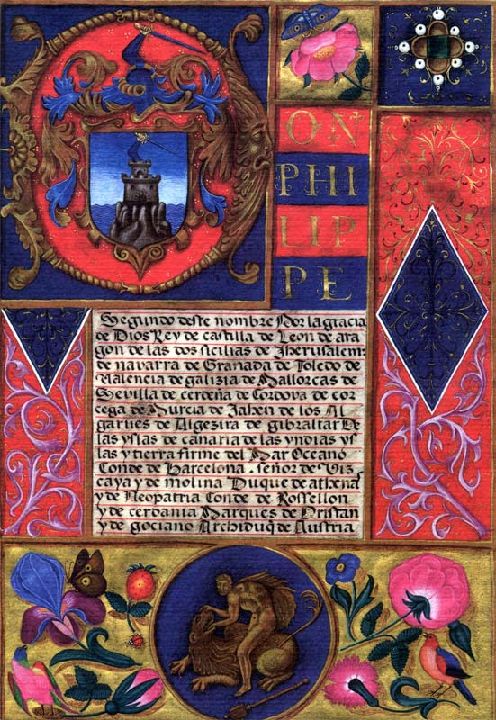 ON
PHI
LIP
PE
Segundo deste nombre Por la gracia
de Dios Rey de castilla de Leon de ara
gon de las dos sicilias de Iherusalem:
de navarra de Granada de Toledo de
Valencia de galizia de Mallorcas de
Sevilla de cerdeña de Cordova de cor
cega de Murcia de Jahen de los Al
garues de Algezira de gibraltar De
las yslas de canaria de las yndias ys
las y tierra firme del Mar Occano
Conde de Barcelona. señor de Viz
caya y de molina Duque de athenas
y de Neopatria Conde de Rossellon
y de cerdania Marques de Oristan
y de gociano Archiduq de Austria